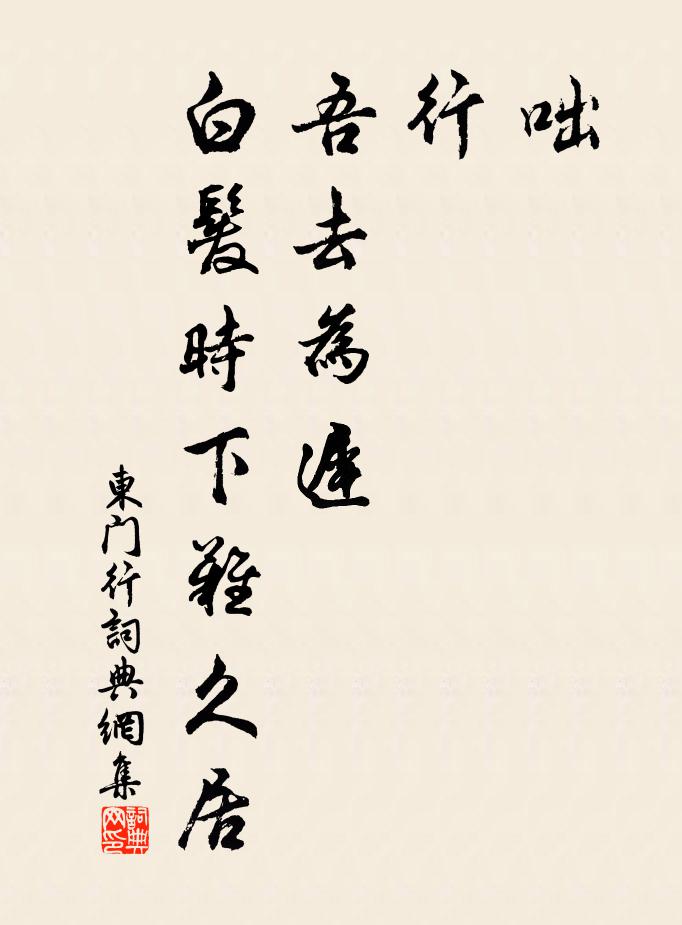 咄
行
吾去為遲
白髮時下難久居
東門行詞典網集
詞典
网印